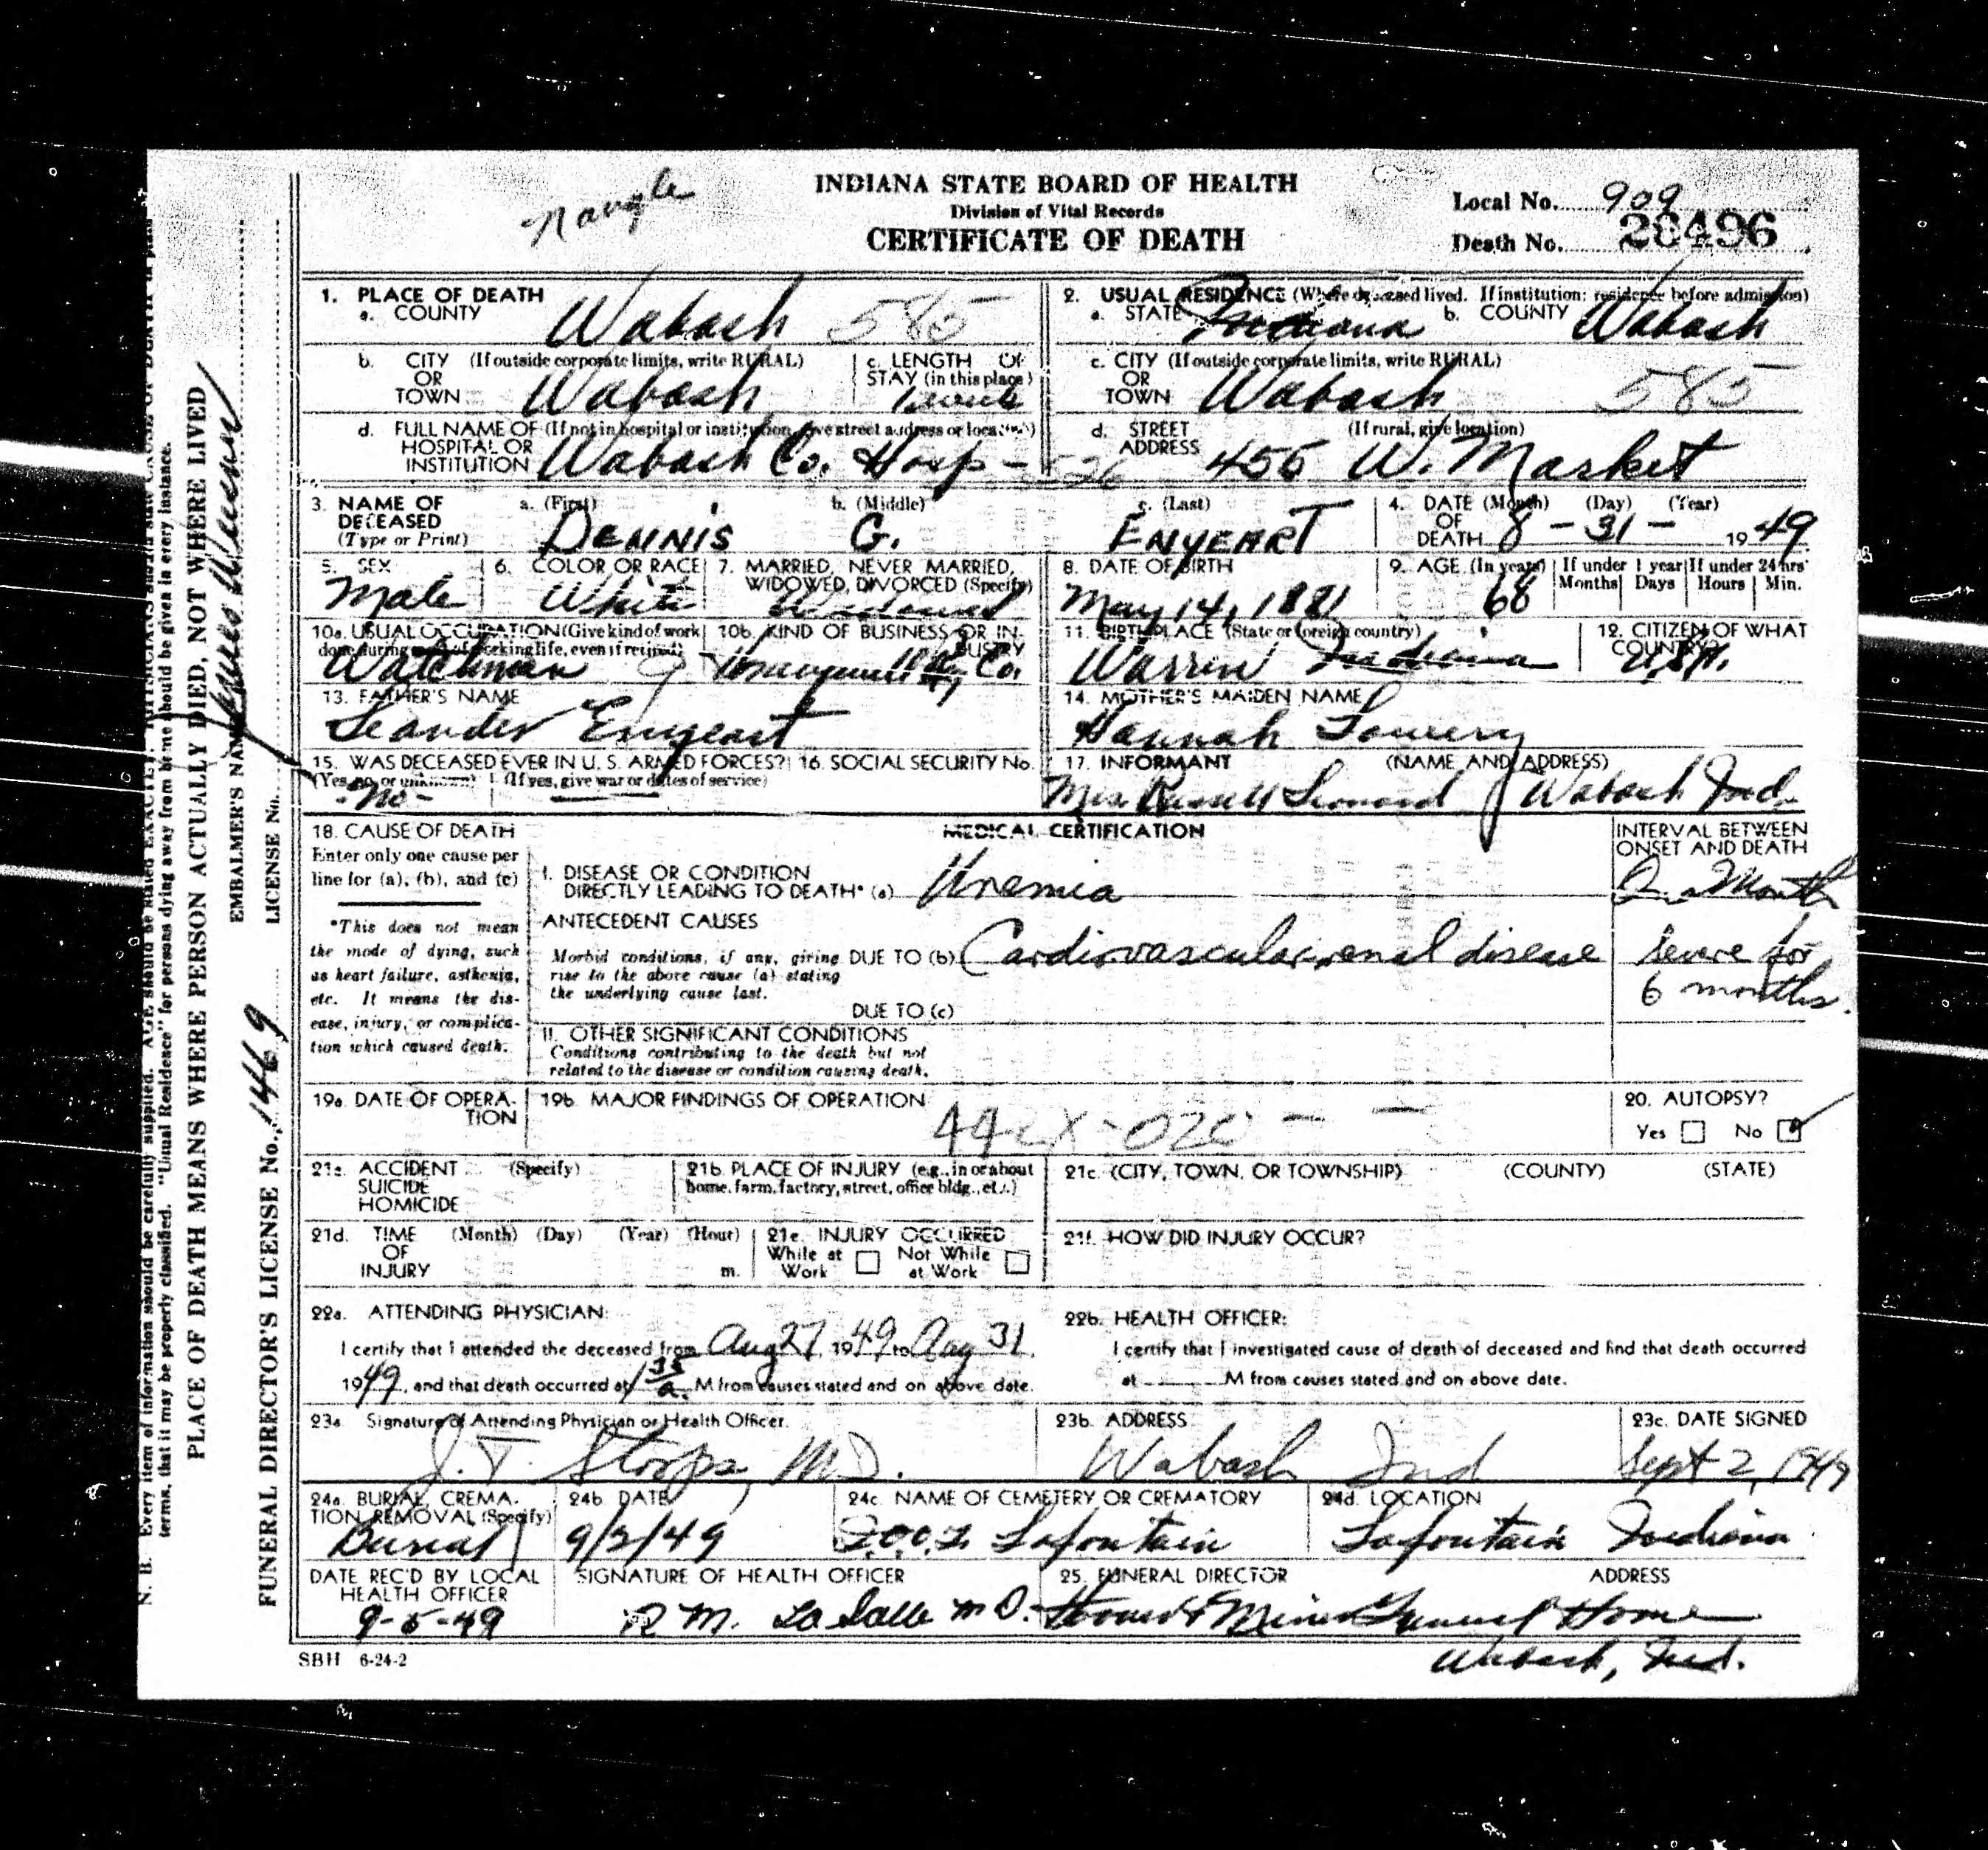 Nangle
INDIANA STATE BOARD OF HEALTH
Division of Vital Records
CERTIFICATE OF DEATH
Local No. 909
Death No. 28496
1. PLACE OF DEATH
a. COUNTY Wabash 585
2. USUAL RESIDENCE (Where deceased lived. If institution: residence before admission)
a. STATE Indiana b. COUNTY Wabash
b. CITY (If outside corporate limits, write RURAL) OR TOWN Wabash
c. LENGTH OF STAY (in this place) 1 week
c. CITY (If outside corporate limits, write RURAL) OR TOWN Wabash 585
d. FULL NAME OF (If not in hospital or institution, give street address or location) HOSPITAL OR INSTITUTION Wabash Co. Hosp -
d. STREET ADDRESS (If rural, give location) 455 W. Market
3. NAME OF DECEASED (Type or Print)
a. (First) DENNIS b. (Middle) G. c. (Last) ENYEART
4. DATE OF DEATH (Month) (Day) (Year) 8 - 31 - 1949
5. SEX Male
6. COLOR OR RACE White
7. MARRIED, NEVER MARRIED, WIDOWED, DIVORCED (Specify) Widowed
8. DATE OF BIRTH May 14, 1881
9. AGE (In years) 68
If under 1 year Months Days
If under 24 hrs Hours Min.
10a. USUAL OCCUPATION (Give kind of work done during most of working life, even if retired) Watchman
10b. KIND OF BUSINESS OR INDUSTRY Honeywell Co.
11. BIRTHPLACE (State or foreign country) Warren Indiana
12. CITIZEN OF WHAT COUNTRY? U.S.A.
13. FATHER'S NAME
Leander Enyeart
14. MOTHER'S MAIDEN NAME
Hannah Lowery
15. WAS DECEASED EVER IN U. S. ARMED FORCES?
(Yes, no, or unknown) (If yes, give war or dates of service)
- No -
16. SOCIAL SECURITY No.
17. INFORMANT (NAME AND ADDRESS)
Mrs. Russell Leonard Wabash Ind.
18. CAUSE OF DEATH
Enter only one cause per line for (a), (b), and (c)
*This does not mean the mode of dying, such as heart failure, asthenia, etc. It means the disease, injury, or complication which caused death.
MEDICAL CERTIFICATION
INTERVAL BETWEEN ONSET AND DEATH
I. DISEASE OR CONDITION
DIRECTLY LEADING TO DEATH* (a) Uremia
Month
ANTECEDENT CAUSES
Morbid conditions, if any, giving rise to the above cause (a) stating the underlying cause last.
DUE TO (b) Cardiovascular, renal disease
severe for
6 months.
DUE TO (c)
II. OTHER SIGNIFICANT CONDITIONS
Conditions contributing to the death but not
related to the disease or condition causing death.
19a. DATE OF OPERATION
19b. MAJOR FINDINGS OF OPERATION
20. AUTOPSY?
Yes No
21a. ACCIDENT SUICIDE HOMICIDE (Specify)
21b. PLACE OF INJURY (e.g., in or about home, farm, factory, street, office bldg., etc.)
21c. (CITY, TOWN, OR TOWNSHIP) (COUNTY) (STATE)
21d. TIME OF INJURY (Month) (Day) (Year) (Hour) m.
21e. INJURY OCCURRED
While at Work Not While at Work
21f. HOW DID INJURY OCCUR?
22a. ATTENDING PHYSICIAN:
I certify that I attended the deceased from Aug 27, 1949 to Aug 31,
1949, and that death occurred at 1 35 a. M from causes stated and on above date.
22b. HEALTH OFFICER:
I certify that I investigated cause of death of deceased and find that death occurred
at M from causes stated and on above date.
23a. Signature of Attending Physician or Health Officer.
J. T. Stoops, M.D.
23b. ADDRESS
Wabash Ind
23c. DATE SIGNED
Sept 2, 1949
24a. BURIAL, CREMATION, REMOVAL (Specify)
Burial
24b. DATE
9/2/49
24c. NAME OF CEMETERY OR CREMATORY
I.O.O.F. Lafontain
24d. LOCATION
Lafountain Indiana
DATE REC'D BY LOCAL HEALTH OFFICER
9-5-49
SIGNATURE OF HEALTH OFFICER
R M. La Salle M D.
25. FUNERAL DIRECTOR ADDRESS
Funeral Home
Wabash, Ind.
SBH 6-24-2
N. B. Every item of information should be carefully supplied. AGE should be stated EXACTLY. PHYSICIANS should state CAUSE OF DEATH in plain
terms, that it may be properly classified. "Usual Residence" for persons dying away from home should be given in every instance.
PLACE OF DEATH MEANS WHERE PERSON ACTUALLY DIED, NOT WHERE LIVED
EMBALMER'S NAME
LICENSE No.
FUNERAL DIRECTOR'S LICENSE No. 1469